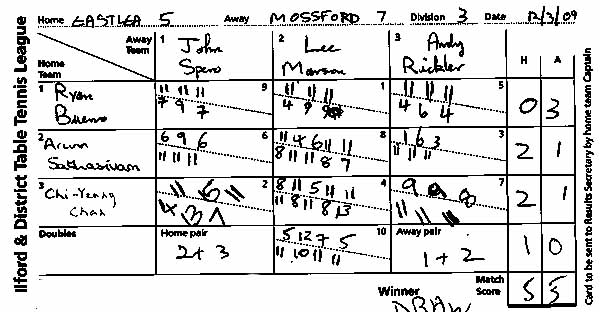 Home EASTLEA 5 Away MOSSFORD 7 Division 3 Date 12/3/09
Ilford & District Table Tennis League
Away Team
Home Team
1 John Spero
2 Lee Marson
3 Andy Rickler
H A
1 Ryan Bueno
9
11 11 11
7 9 7
1
11 11 11
4 9
5
11 11 11
4 6 4
0 3
2 Arun Sathasivam
6
6 9 6
11 11 11
8
11 4 6 11 8
8 11 11 8 7
3
1 6 3
11 11 11
2 1
3 Chi-Yeung Chan
2
11 6 11
4
8 11 5 11 11
11 8 11 8 13
7
9 9 8
11 11 11
2 1
Doubles
Home pair
2 + 3
10
5 12 7 5
11 10 11 11
Away pair
1 + 2
1 0
Winner
DRAW
Match Score
5 5
Card to be sent to Results Secretary by home team Captain